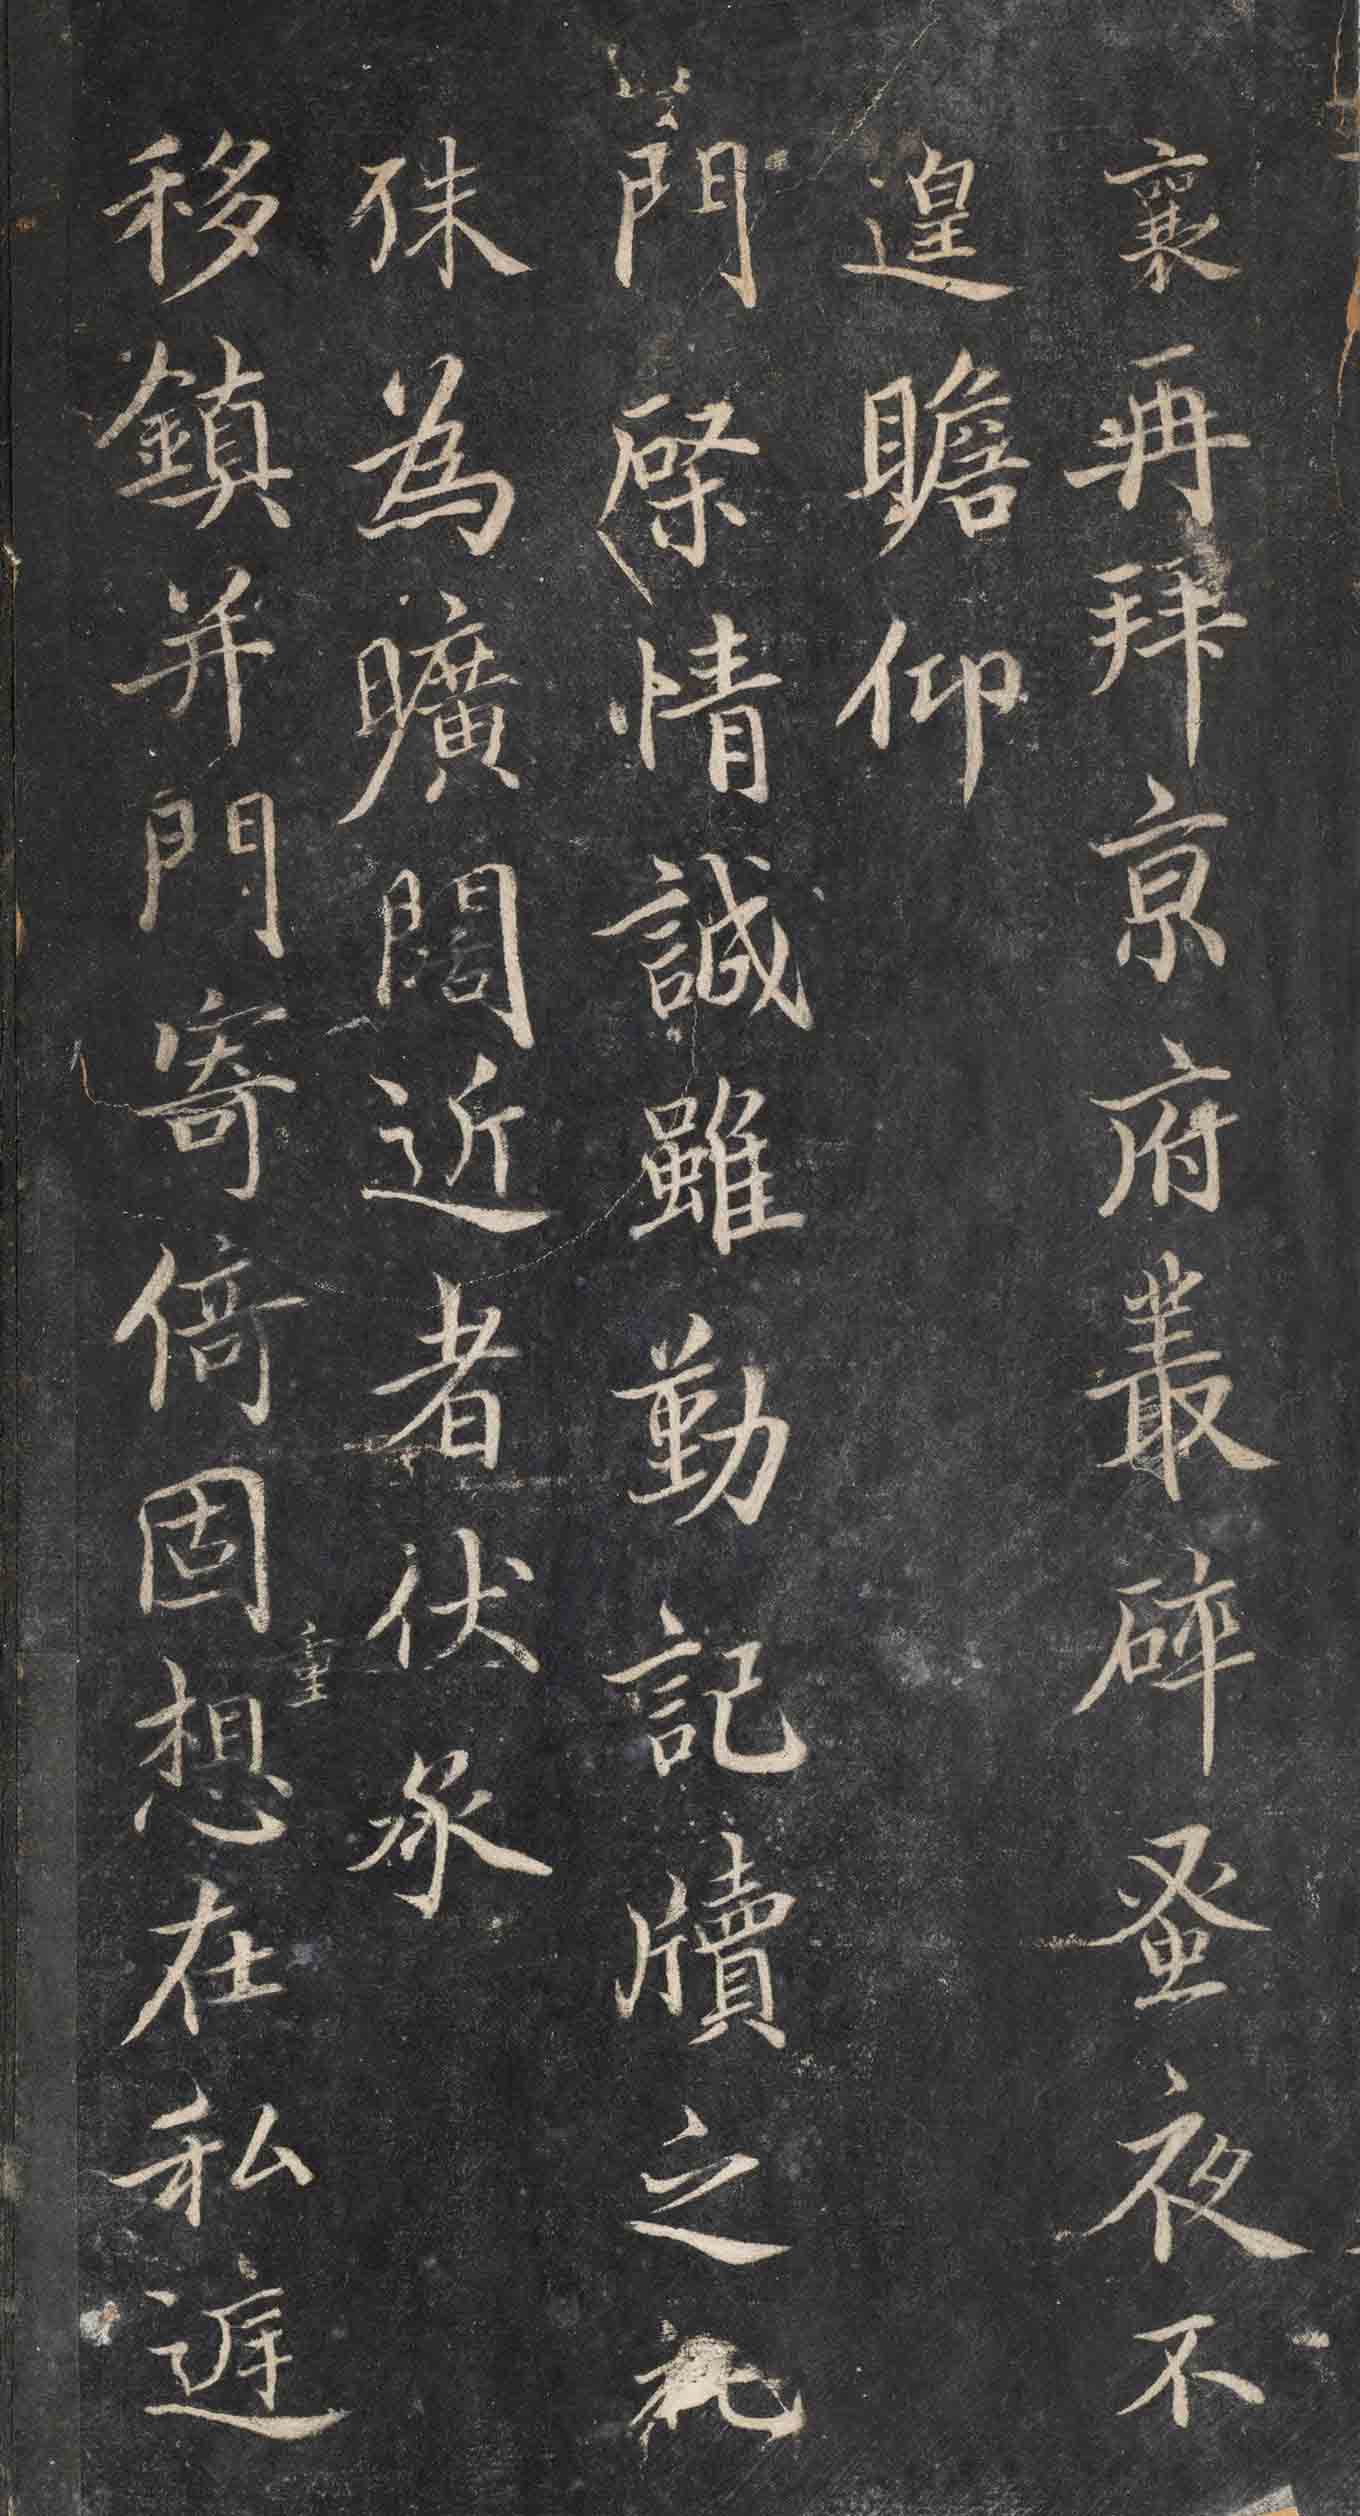 襄再拜京府叢碎蚤夜不
遑瞻仰
門棨情誠雖勤記牘之礼
殊為曠闊近者伏承
移鎮并門寄倚固重想在私